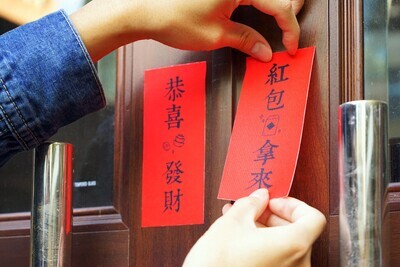 恭喜發財
紅包拿來
TEMPERED GLASS